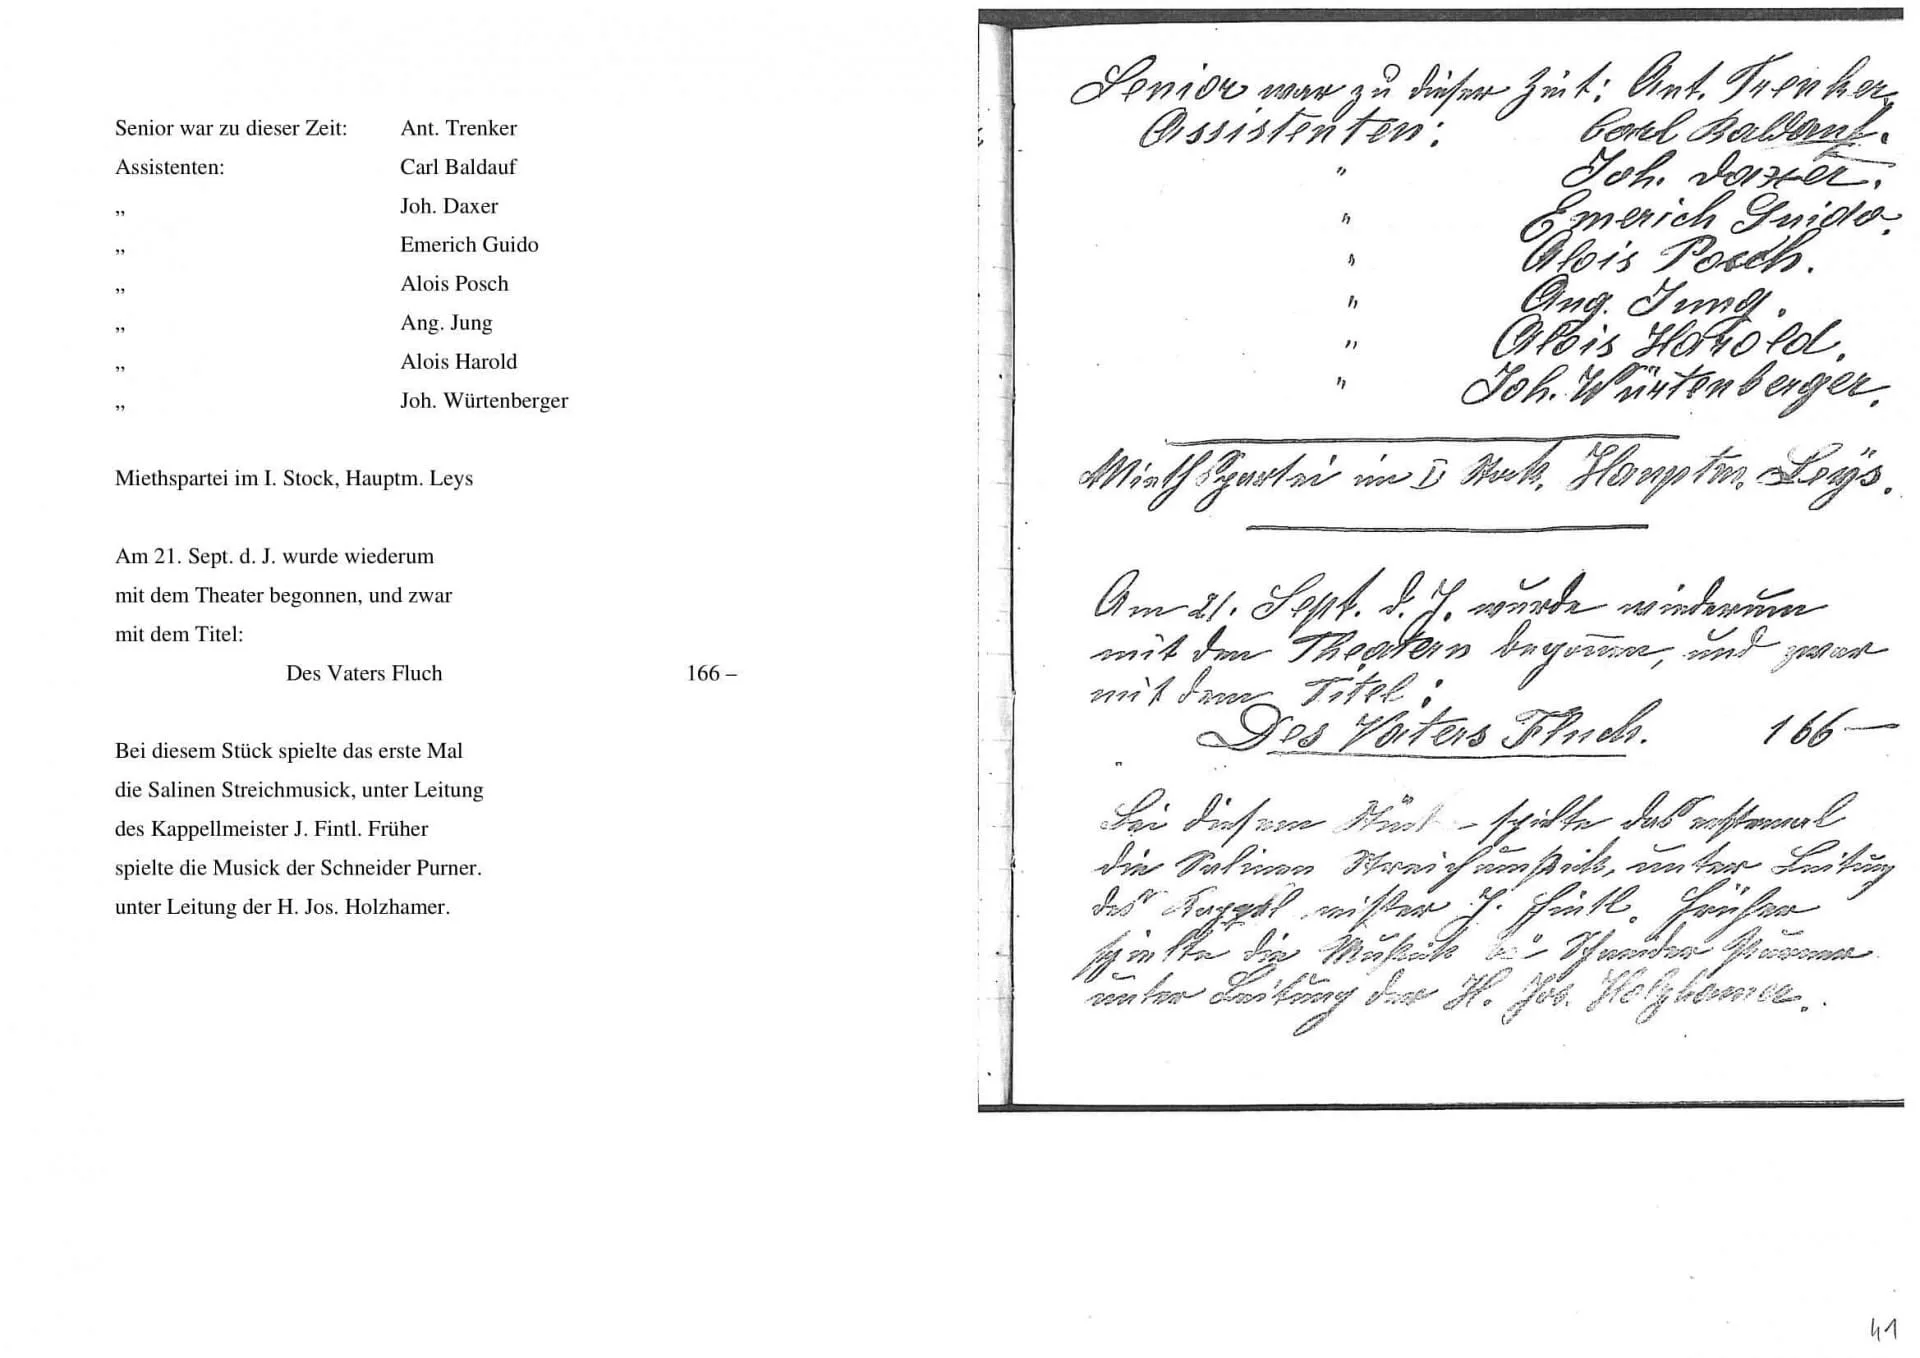 Senior war zu dieser Zeit: Ant. Trenker
Assistenten: Carl Baldauf
„ Joh. Daxer
„ Emerich Guido
„ Alois Posch
„ Ang. Jung
„ Alois Harold
„ Joh. Würtenberger
Miethspartei im I. Stock, Hauptm. Leys
Am 21. Sept. d. J. wurde wiederum
mit dem Theater begonnen, und zwar
mit dem Titel:
Des Vaters Fluch 166 –
Bei diesem Stück spielte das erste Mal
die Salinen Streichmusick, unter Leitung
des Kappellmeister J. Fintl. Früher
spielte die Musick der Schneider Purner.
unter Leitung der H. Jos. Holzhamer.
Senior war zu dieser Zeit: Ant. Trenker.
Assistenten: Carl Baldauf.
" Joh. Daxer.
" Emerich Guido.
" Alois Posch.
" Aug. Jung.
" Alois Harold.
" Joh. Würtenberger.
Miethspartei im I Stock, Hauptm. Leÿs.
Am 21. Sept. d. J. wurde wiederum
mit den Theatern begonnen, und zwar
mit dem Titel:
Des Vaters Fluch. 166 —
Bei diesem Stück spielte das erstemal
die Salinen Streichmusick, unter Leitung
des Kappelmeister J. Fintl. Früher
spielte die Musick Schneider Purner
unter Leitung der H. Jos. Holzhamer.
41